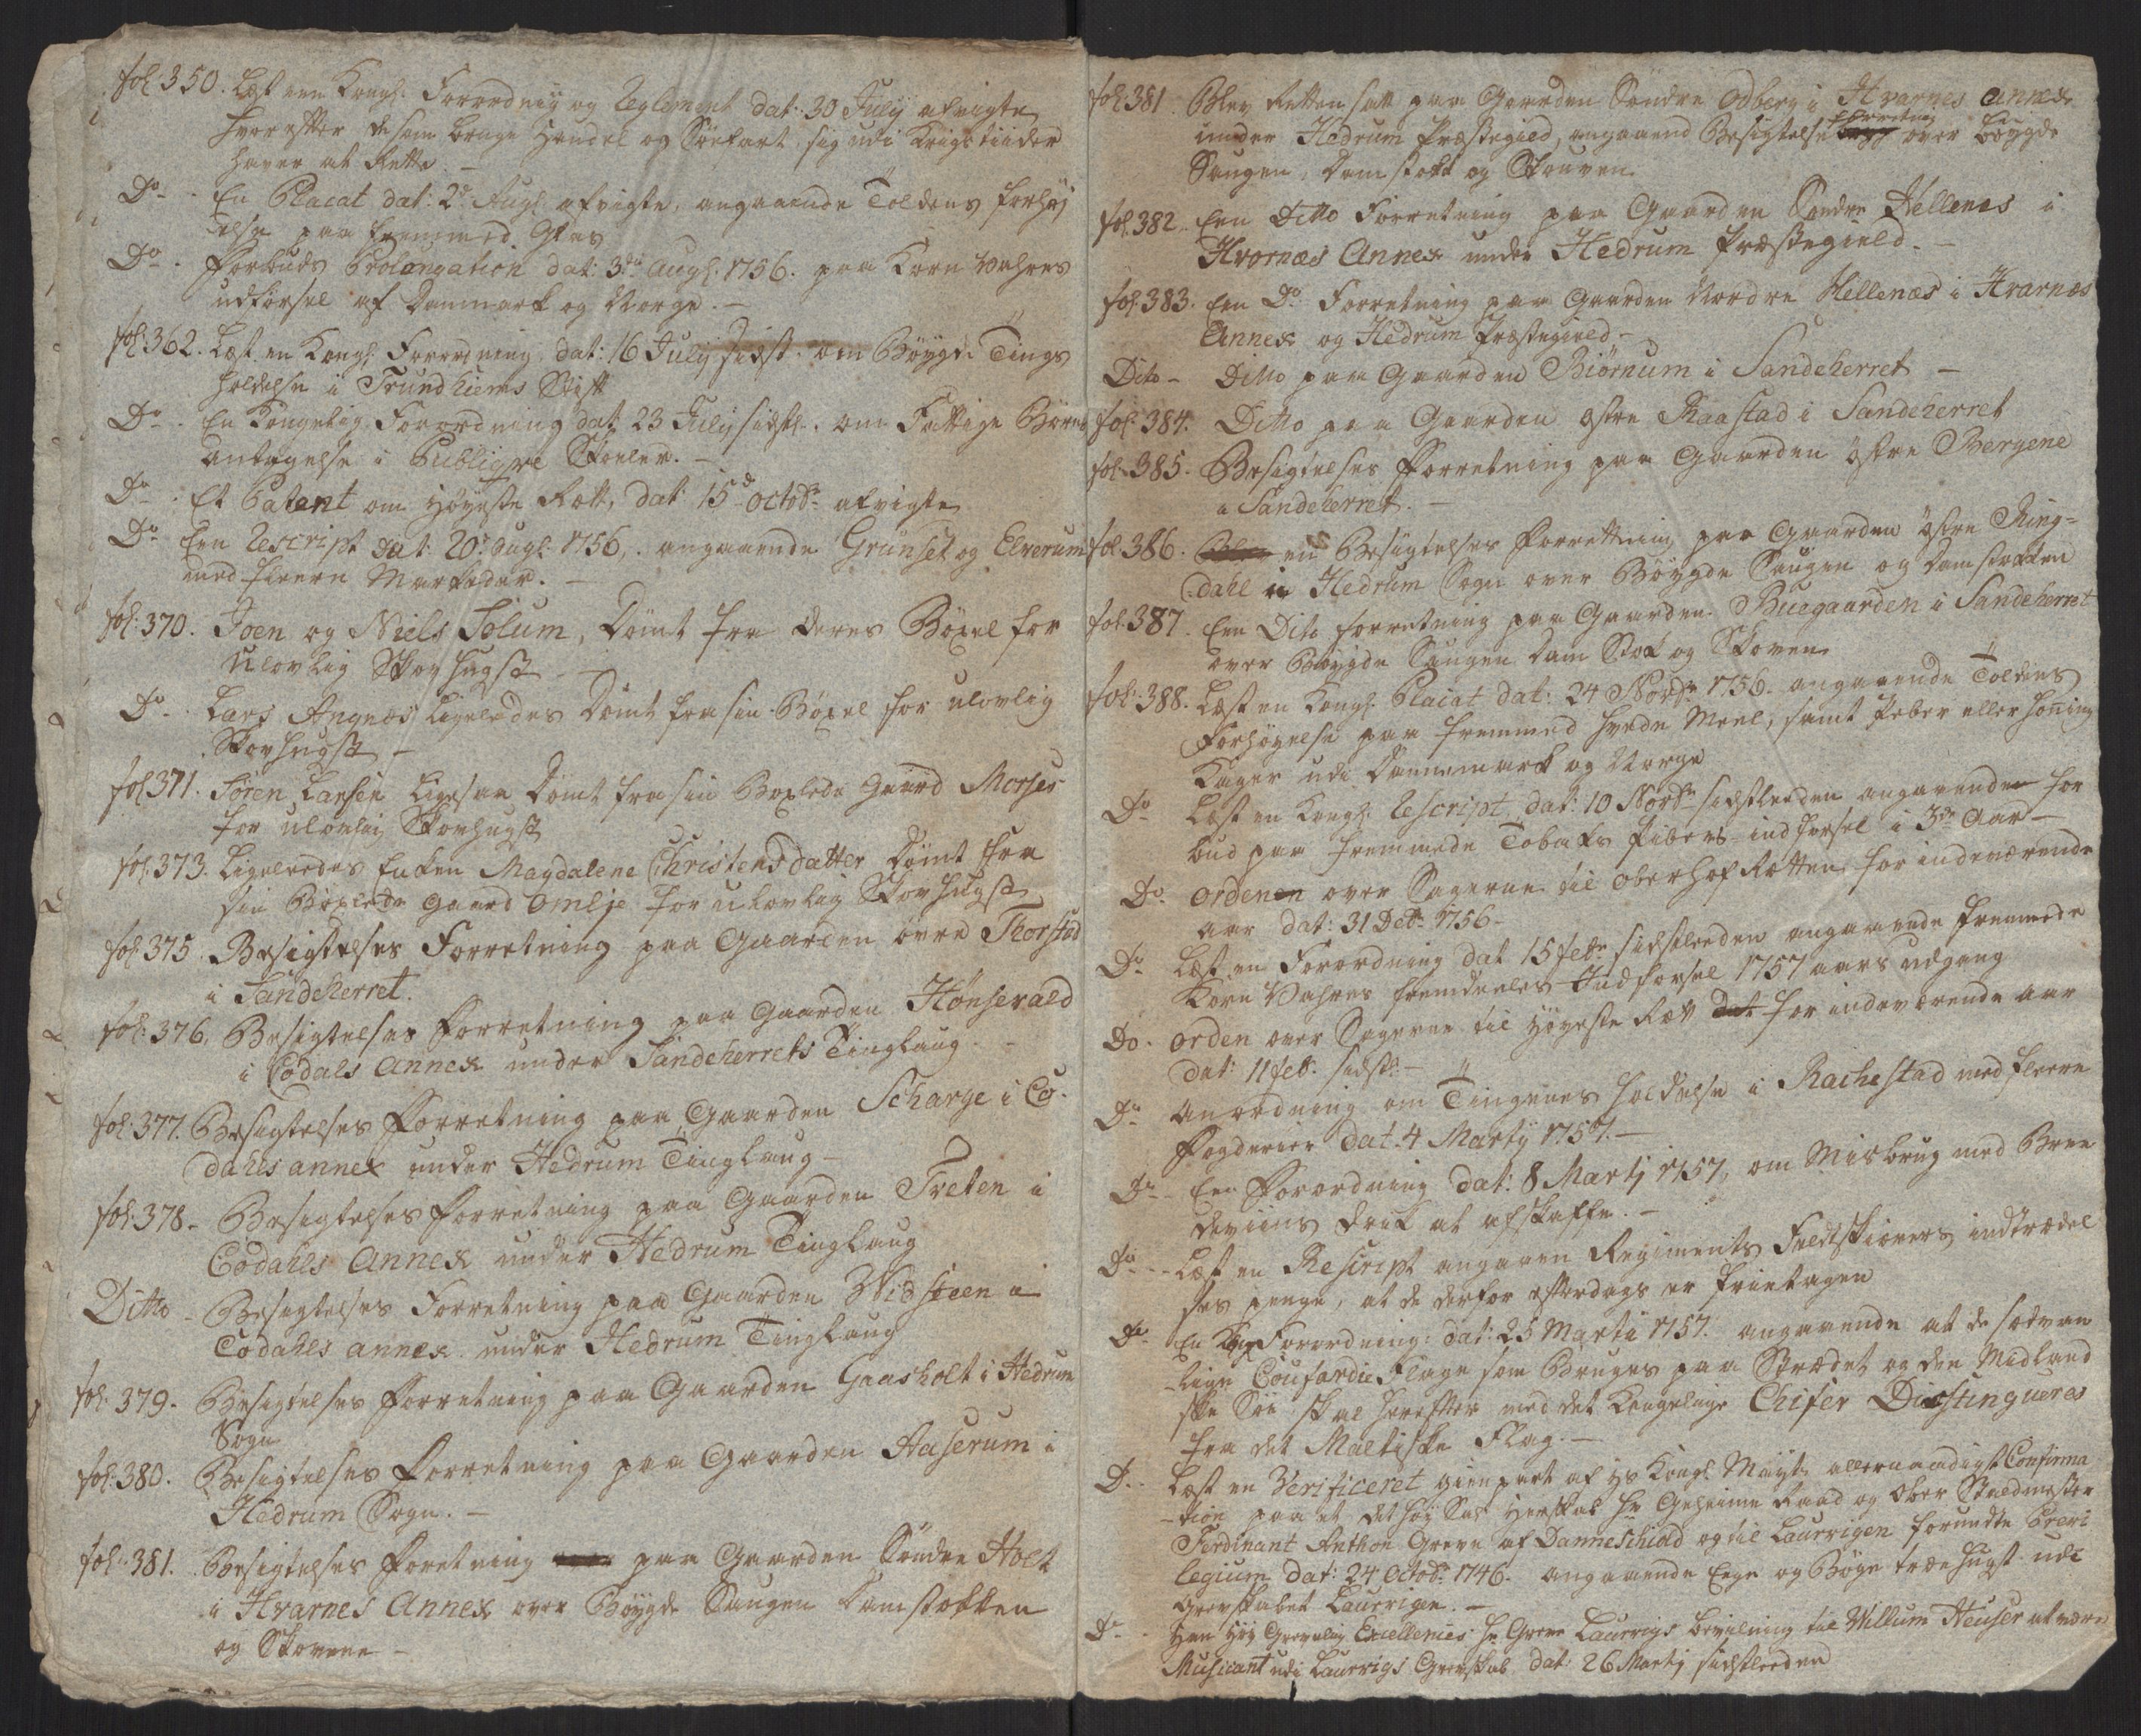 fol: 350. Læst een Kongl: Forordnig og Reglement dat: 30 July afvigte
hvorefter de som bruge Handel og Söefart sig udi Krigstiider
haver at Rette. –
Do. En Placat dat: 2de Augl. afvigte, angaaende Toldens forhøj
else paa fremmed Glas
Do. Forbuds Prolongation dat: 3die Augl: 1756. paa Korn Vahres
udførsel af Danmark og Norge. –
fol: 362. Læst en Kongl: Forordning dat: 16 July sidst. om Böygde Tings
holdelse i Trundhiems Stift
Do. En Kongelig Forordning dat: 23 July sidstl. om Fattige Börns
antagelse i Publiqve Skoeler. –
Do. Et Patent om Höyeste Rett, dat: 15de octobr afvigte
Do. Een Rescript dat: 20: Augl: 1756, angaaende Grunset og Elverum
med fleere Markeder. –
fol: 370. Joen og Niels Solum, Dömt fra deres Böxel for
Ulovlig Skovhugst –
Do. Lars Angnæs ligeledes Dömt fra sin Böxel for ulovlig
Skovhugst –
fol 371. Sören Larsen ligesaa Dömt fra sin Boxlede Gaard Morser
for ulovlig Skovhugst
fol: 373. Ligeleedes Enken Magdalene Christensdatter Dömt fra
sin Böxlede Gaard Omlje for ulovlig Skovhugst
fol: 375. Besigtelses Forretning paa Gaarden övre Thorstad
i Sandeherret.
fol: 376. Besigtelses Forretning paa Gaarden Hönsevald
i Codals Annex under Sandeherrets Tinglaug. –
fol: 377. Besigtelses Forretning paa Gaarden Scharge i Co-
dahls annex under Hedrum Tinglaug –
fol: 378 – Besigtelses Forretning paa Gaarden Treten i
Codahls Annex under Hedrum Tinglaug
Ditto – Besigtelses Forretning paa Gaarden Vidsteen i
Codahls annex under Hedrum Tinglaug
fol: 379. Besigtelses Forretning paa Gaarden Gaasholt i Hedrum
Sogn
fol: 380. Besigtelses Forretning paa Gaarden Aaserum i
Hedrum Sogn. –
fol: 381. Besigtelses Foretning paa Gaarden Söndre Holt
i Hvarnes Annex over Böygde Saugen Damstokken
og Skovene –
fol: 381 Blev Retten satt paa Gaarden Söndre Odberg i Hvarnes Annex
under Hedrum Præstegield, angaaend Besigtelse Forretning over böygde
Saugen, Damstokk og Skouven
fol. 382. Een Ditto Forretning paa Gaarden Söndre Hellenes i
Hvornæs Annex under Hedrum Præstegield. –
fol: 383. Een Do Forretning paa Gaarden Nordre Hellenæs i Hvarnæs
Annex og Hedrum Præstegield –
Dito – Ditto paa Gaarden Biørnum i Sandeherret –
fol: 384. Ditto paa Gaarden Østre Raastad i Sandeherret
fol: 385. Besigtelses Forretning paa Gaarden Östre Bergene
i Sandeherret. –
fol: 386. en Besigtelses Forrettning paa Gaarden östre Ring=
dahl i Hedrum Sogn over Böygde Saugen og Damstokken
fol: 387. Een Dito forretning paa Gaarden Buegaarden i Sandeherret
over Böygde Saugen Dam Stok og Skoven
fol: 388. Læst en Kongl: Placat dat: 24 Novbr 1756. angaaende Toldens
Forhöyelse paa fremmed hvede Meel, samt Peber eller Honing
Kager udi Dannemark og Norge
Do Læst en Kongl: Rescript dat: 10 Novbr sidstleeden angaaende for
bud paa fremmede Tobaks Pibers indførsel i 3de Aar –
Do. Ordenen over Sagerne til Oberhof Retten for indeværende
Aar dat: 31 Debr 1756 –
Do. Læst en Forordning dat 15 febr sidstleeden angaaende fremmede
Korn Vahres fremdeeles Indførsel 1757 aars udgang
Do. Orden over Sagerne til Höyeste Ret for indeværende aar
dat: 11 feb: sidstl. –
Do Anordning om Tingenes Holdelse i Rachestad med fleere
Fogderier dat. 4 Martij 1757. –
Do Een Forordning dat: 8 Martij 1757, om Misbrug med Bren
deviins drik at afskaffe. –
Do – Læst en Rescript angaaen Regiments Feltskiærers indtrædel
ses penge, at de derfor efterdags er frietagen
Do En Forordning: dat: 25 Martii 1757. angaaende at de sædvan
lige Coufardie Flage som Bruges paa Strædet og den Midland
ske Söe skal herefter med det Kongelige Chifer Distingueres
fra det Maltiske Flag. –
D. Læst en Verificeret gienpart af Hs Kongl. Mayts allernaadigst Confirma
tion paa et det höy Herskab Hr Geheime Raad og Ober Staldmester
Ferdinant Anthon Greve af Danneschiold og til Laurvigen forundte Privi
legium dat: 24 Octobr 1746. angaaende Eege og Böge træehugst udi
Grevskabet Laurvigen. –
Do Höy Grevelig Excellences Hr Greve Laurvigs bevilning til Villum Heuser at være
Musicant udi Laurvigs Grevskab dat: 26 Martij sidstleeden